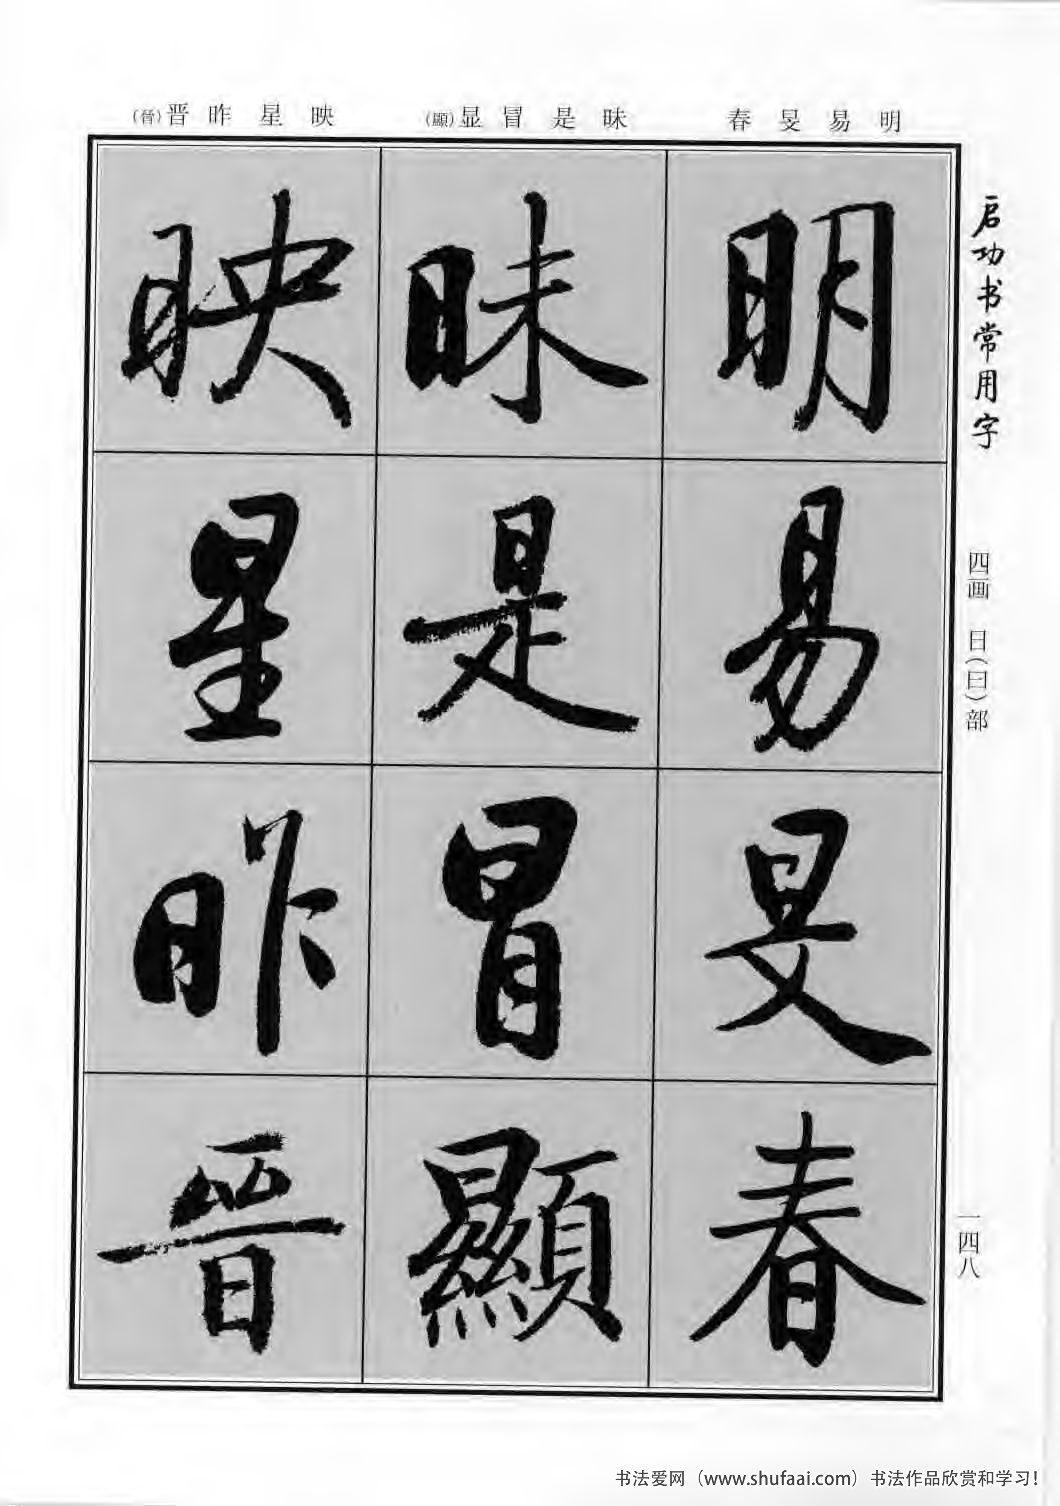 明易旻春
昧是冒显(顯)
映星昨晋(晉)
启功书常用字
四画 日(曰)部
一四八
明
易
旻
春
昧
是
冒
顯
映
星
昨
晋
书法爱网（www.shufaai.com）书法作品欣赏和学习！